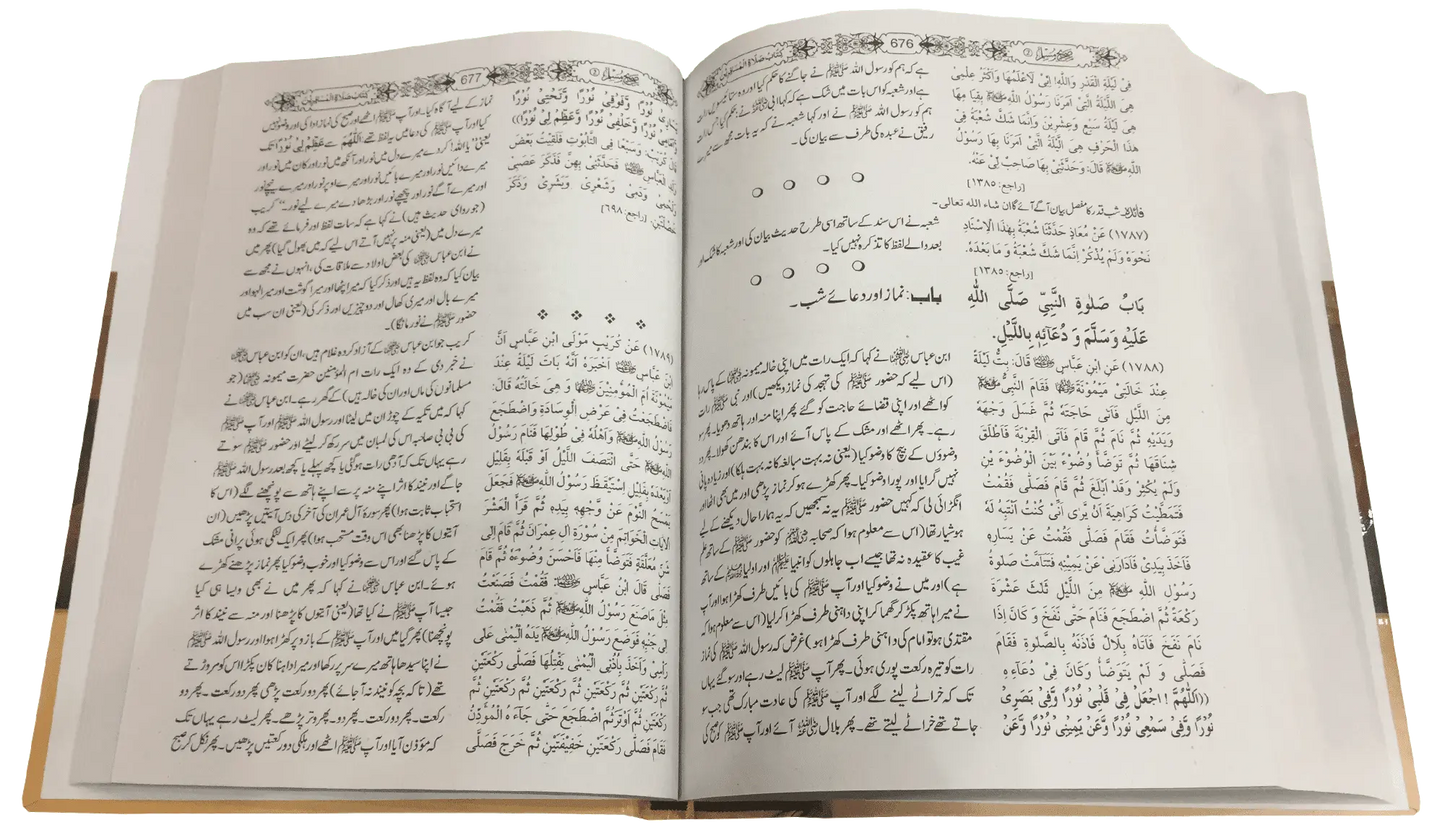 صحیح مسلم ② 676 كتاب صلاة المسافرين
فِیْ لَیْلَةِ الْقَدْرِ وَاللّٰهِ! اِنِّیْ لَاَعْلَمُهَا وَاَکْثَرُ عِلْمِیْ
هِیَ اللَّیْلَةُ الَّتِیْ اَمَرَنَا رَسُوْلُ اللّٰهِ ﷺ بِقِیَا مِهَا
هِیَ لَیْلَةُ سَبْعٍ وَعِشْرِیْنَ وَاِنَّمَا شَكَّ شُعْبَةُ فِیْ
هٰذَا الْحَرْفِ هِیَ اللَّیْلَةُ الَّتِیْ اَمَرَنَا بِهَا رَسُوْلُ
اللّٰهِ ﷺ قَالَ: وَحَدَّثَنِیْ بِهَا صَاحِبٌ لِّیْ عَنْهُ.
[راجع: ۱۳۸۵]
فائدہ۔ شب قدر کا مفصل بیان آگے آئے گا ان شاء اللہ تعالی۔
(۱۷۸۷) عَنْ مُعَاذٍ حَدَّثَنَا شُعْبَةُ بِهٰذَا الْاِسْنَادِ
نَحْوَهُ وَلَمْ یَذْکُرْ اِنَّمَا شَكَّ شُعْبَةُ وَ مَا بَعْدَهُ.
[راجع: ۱۳۸۵]
بَابُ صَلٰوةِ النَّبِیِّ صَلَّی اللّٰهِ
عَلَیْهِ وَسَلَّمَ وَ دُعَآئِهِ بِاللَّیْلِ.
(۱۷۸۸) عَنِ ابْنِ عَبَّاسٍ ﷺ قَالَ: بِتُّ لَیْلَةً
عِنْدَ خَالَتِیْ مَیْمُوْنَةَ فَقَامَ النَّبِیُّ ﷺ
مِنَ اللَّیْلِ فَاَتٰی حَاجَتَهُ ثُمَّ غَسَلَ وَجْهَهٗ
وَیَدَیْهِ ثُمَّ نَامَ ثُمَّ قَامَ فَاَتَی الْقِرْبَةَ فَاَطْلَقَ
شِنَاقَهَا ثُمَّ تَوَضَّاَ وُضُوْءً بَیْنَ الْوُضُوْءَ یْنِ
وَلَمْ یُکْثِرْ وَقَدْ اَبْلَغَ ثُمَّ قَامَ فَصَلّٰی فَقُمْتُ
فَتَمَطَّیْتُ کَرَاهِیَةَ اَنْ یَّرٰی اَنِّیْ کُنْتُ اَنْتَبِهُ لَهٗ
فَتَوَضَّأْتُ فَقَامَ فَصَلّٰی فَقُمْتُ عَنْ یَسَارِهٖ
فَاَخَذَ بِیَدِیْ فَاَدَارَنِیْ عَنْ یَّمِیْنِهٖ فَتَتَآمَّتْ صَلٰوةُ
رَسُوْلِ اللّٰهِ ﷺ مِنَ اللَّیْلِ ثَلٰثَ عَشْرَةَ
رَکْعَةً ثُمَّ اضْطَجَعَ فَنَامَ حَتّٰی نَفَخَ وَ کَانَ اِذَا
نَامَ نَفَخَ فَاَتَاهُ بِلَالٌ فَاٰذَنَهٗ بِالصَّلٰوةِ فَقَامَ
فَصَلّٰی وَ لَمْ یَتَوَضَّأْ وَکَانَ فِیْ دُعَاءِهٖ
((اَللّٰهُمَّ ! اجْعَلْ فِیْ قَلْبِیْ نُوْرًا وَّفِیْ بَصَرِیْ
نُوْرًا وَّفِیْ سَمْعِیْ نُوْرًا وَّعَنْ یَمِیْنِیْ نُوْرًا وَّعَنْ
ہے کہ ہم کو رسول اللہ ﷺ نے جاگنے کا حکم کیا اور وہ ستائیسویں رات
ہے اور شعبہ کو اس بات میں شک ہے کہ
ہم کو رسول اللہ ﷺ نے اور کہا شعبہ نے کہ یہ بات مجھ سے میرے
رفیق نے عبدہ کی طرف سے بیان کی۔
شعبہ نے اس سند کے ساتھ اسی طرح حدیث بیان کی اور شعبہ کا شک اور
بعد والے لفظ کا تذکرہ نہیں کیا۔
باب: نماز اور دعائے شب۔
ابن عباس ﷺ نے کہا کہ ایک رات میں اپنی خالہ میمونہ ﷺ کے پاس رہا
(اس لیے کہ حضور ﷺ کی تہجد کی نماز دیکھیں) اور نبی ﷺ رات
کو اٹھے اور اپنی قضائے حاجت کو گئے پھر اپنا منہ اور ہاتھ دھویا۔ پھر سو
رہے۔ پھر اٹھے اور مشک کے پاس آئے اور اس کا بندھن کھولا۔ پھر دو
وضوؤں کے بیچ کا وضو کیا (یعنی نہ بہت مبالغہ کا نہ بہت ہلکا) اور زیادہ پانی
نہیں گرایا اور پورا وضو کیا۔ پھر کھڑے ہو کر نماز پڑھی اور میں بھی اٹھا اور
انگڑائی لی کہ کہیں حضور ﷺ یہ نہ سمجھیں کہ یہ ہمارا حال دیکھنے کے لیے
ہوشیار تھا (اس سے معلوم ہوا کہ صحابہ کو حضور ﷺ کے ساتھ علم
غیب کا عقیدہ نہ تھا جیسے اب جاہلوں کو انبیا اور اولیا کے ساتھ
ہے) اور میں نے وضو کیا اور آپ ﷺ کی بائیں طرف کھڑا ہوا اور آپ
نے میرا ہاتھ پکڑ کر گھما کر اپنی داہنی طرف کھڑا کر لیا (اس سے معلوم ہوا کہ
مقتدی ہو تو امام کی داہنی طرف کھڑا ہو) غرض کہ رسول اللہ ﷺ کی نماز
رات کو تیرہ رکعت پوری ہوئی۔ پھر آپ ﷺ لیٹ رہے اور سو گئے یہاں
تک کہ خراٹے لینے لگے اور آپ ﷺ کی عادت مبارک تھی جب سو
جاتے تھے خراٹے لیتے تھے۔ پھر بلال آئے اور آپ ﷺ کو صبح کی
صحیح مسلم ② 677 كتاب صلاة المسافرين
یَسَارِیْ نُوْرًا وَّفَوْقِیْ نُوْرًا وَّتَحْتِیْ نُوْرًا
وَّاَمَامِیْ نُوْرًا وَّخَلْفِیْ نُوْرًا وَّعَظِّمْ لِیْ نُوْرًا))
قَالَ کُرَیْبٌ: وَسَبْعًا فِی التَّابُوْتِ فَلَقِیْتُ بَعْضَ
وَلَدِ الْعَبَّاسِ فَحَدَّثَنِیْ بِهِنَّ فَذَکَرَ عَصَبِیْ
وَلَحْمِیْ وَدَمِیْ وَشَعْرِیْ وَبَشَرِیْ وَذَکَرَ
خَصْلَتَیْنِ. [راجع: ۶۹۸]
(۱۷۸۹) عَنْ کُرَیْبٍ مَوْلَی ابْنِ عَبَّاسٍ اَنَّ
ابْنَ عَبَّاسٍ ﷺ اَخْبَرَهٗ اَنَّهٗ بَاتَ لَیْلَةً عِنْدَ
مَیْمُوْنَةَ اُمِّ الْمُؤْمِنِیْنَ وَ هِیَ خَالَتُهٗ قَالَ:
فَاضْطَجَعْتُ فِیْ عَرْضِ الْوِسَادَةِ وَاضْطَجَعَ
رَسُوْلُ اللّٰهِ ﷺ وَاَهْلُهٗ فِیْ طُوْلِهَا فَنَامَ رَسُوْلُ
اللّٰهِ ﷺ حَتّٰی انْتَصَفَ اللَّیْلُ اَوْ قَبْلَهٗ بِقَلِیْلٍ
اَوْ بَعْدَهٗ بِقَلِیْلٍ اِسْتَیْقَظَ رَسُوْلُ اللّٰهِ ﷺ فَجَعَلَ
یَمْسَحُ النَّوْمَ عَنْ وَّجْهِهٖ بِیَدِهٖ ثُمَّ قَرَأَ الْعَشْرَ
الْاٰیَاتِ الْخَوَاتِمَ مِنْ سُوْرَةِ اٰلِ عِمْرَانَ ثُمَّ قَامَ اِلٰی
شَنٍّ مُعَلَّقَةٍ فَتَوَضَّأَ مِنْهَا فَاَحْسَنَ وُضُوْءَهٗ ثُمَّ قَامَ
فَصَلّٰی قَالَ ابْنُ عَبَّاسٍ ﷺ: فَقُمْتُ فَصَنَعْتُ
مِثْلَ مَاصَنَعَ رَسُوْلُ اللّٰهِ ﷺ ثُمَّ ذَهَبْتُ فَقُمْتُ
اِلٰی جَنْبِهٖ فَوَضَعَ رَسُوْلُ اللّٰهِ ﷺ یَدَهُ الْیُمْنٰی عَلٰی
رَاْسِیْ وَاَخَذَ بِاُذُنِی الْیُمْنٰی یَفْتِلُهَا فَصَلّٰی رَکْعَتَیْنِ
ثُمَّ رَکْعَتَیْنِ ثُمَّ رَکْعَتَیْنِ ثُمَّ رَکْعَتَیْنِ ثُمَّ
رَکْعَتَیْنِ ثُمَّ اَوْتَرَ ثُمَّ اضْطَجَعَ حَتّٰی جَآءَ هُ الْمُؤَذِّنُ
فَقَامَ فَصَلّٰی رَکْعَتَیْنِ خَفِیْفَتَیْنِ ثُمَّ خَرَجَ فَصَلَّی
نماز کے لیے آگاہ کیا۔ اور آپ ﷺ اٹھے اور صبح کی نماز ادا کی اور وضو نہیں
کیا اور آپ ﷺ کی دعا میں یہ لفظ تھے اَللّٰهُمَّ سے عَظِّمْ لِیْ نُوْرًا تک
یعنی ”یا اللہ! کر دے میرے دل میں نور اور آنکھ میں نور اور کان میں نور اور
میرے دائیں نور اور میرے بائیں نور اور میرے اوپر نور اور میرے نیچے نور
اور میرے آگے نور اور پیچھے نور اور بڑھا دے میرے لیے نور۔“ کریب
(جو راوی حدیث ہیں) نے کہا ہے کہ سات لفظ اور فرمائے تھے کہ وہ
میرے دل میں (یعنی منہ پر نہیں آتے اس لیے کہ میں بھول گیا) پھر میں
نے ابن عباس ﷺ کی بعض اولاد سے ملاقات کی، انہوں نے مجھ سے
بیان کیا کہ وہ لفظ یہ ہیں اور ذکر کیا کہ میرا پٹھا اور میرا گوشت اور میرا لہو اور
میرے بال اور میری کھال اور دو چیزیں اور ذکر کی (یعنی ان سب میں
حضور ﷺ نے نور مانگا)۔
کریب جو ابن عباس ﷺ کے آزاد کردہ غلام ہیں، ان کو ابن عباس ﷺ
نے خبر دی کے وہ ایک رات ام المؤمنین حضرت میمونہ (جو
مسلمانوں کی ماں اور ان کی خالہ ہیں) کے گھر رہے۔ ابن عباس نے
کہا کہ میں تکیہ کے چوڑان میں لیٹا اور رسول اللہ ﷺ اور آپ ﷺ
کی بی بی صاحبہ اس کی لمبان میں سر رکھ کر لیٹے اور حضور ﷺ سوتے
رہے یہاں تک کہ آدھی رات ہو گئی یا کچھ پہلے یا کچھ بعد رسول اللہ ﷺ
جاگے اور نیند کا اثر اپنے منہ پر سے اپنے ہاتھ سے پونچھنے لگے (اس کا
استحباب ثابت ہوا) پھر سورۂ آل عمران کی آخر کی دس آیتیں پڑھیں (ان
آیتوں کا پڑھنا بھی اس وقت مستحب ہوا) پھر ایک لٹکی ہوئی پرانی مشک
کے پاس گئے اور اس سے وضو کیا اور خوب وضو کیا پھر نماز پڑھنے کھڑے
ہوئے۔ ابن عباس ﷺ نے کہا کہ پھر میں نے بھی ویسا ہی کیا
جیسا آپ ﷺ نے کیا تھا (یعنی آیتوں کا پڑھنا اور منہ سے نیند کا اثر
پونچھنا) پھر گیا میں اور آپ ﷺ کے بازو پر کھڑا ہوا اور رسول اللہ ﷺ
نے اپنا سیدھا ہاتھ میرے سر پر رکھا اور میرا داہنا کان پکڑا اس کو مروڑتے
تھے (تا کہ بچہ کو نیند نہ آ جائے) پھر دو رکعت پڑھی پھر دو رکعت۔ پھر دو
رکعت۔ پھر دو رکعت۔ پھر دو۔ پھر دو۔ پھر وتر پڑھے۔ پھر لیٹ رہے یہاں تک
کہ مؤذن آیا اور آپ ﷺ اٹھے اور ہلکی دو رکعتیں پڑھیں۔ پھر نکل کر صبح